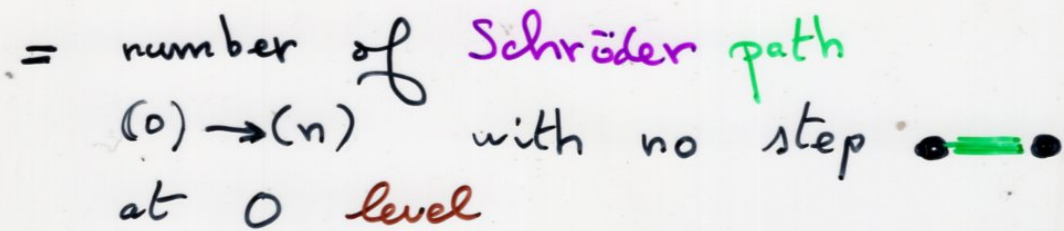 = number of Schröder path
(0) → (n) with no step
at 0 level